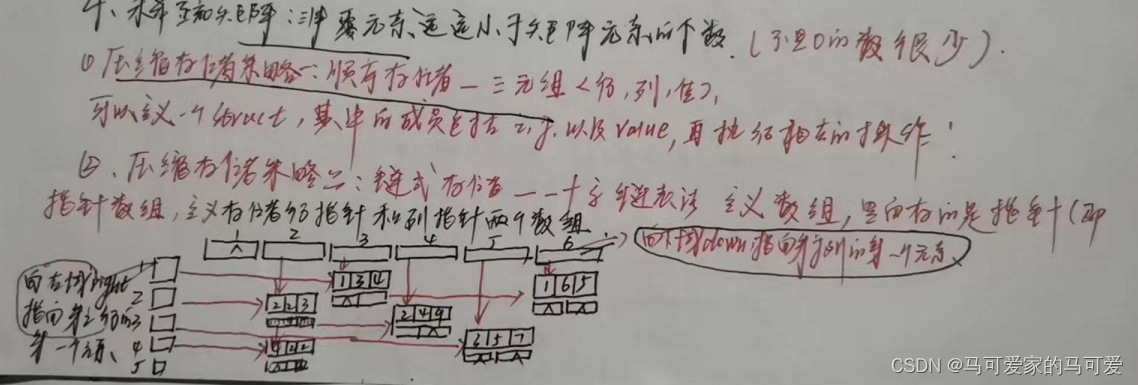 4、稀疏矩阵：非零元素远远小于矩阵元素的个数.(不是0的数很少).
① 压缩存储策略一：顺序存储 — 三元组<行,列,值>,
可以定义一个struct，其中的成员包括i,j,以及value,再执行相应的操作!
②、压缩存储策略二：链式存储 — 十字链表法 定义数组，里面存的是指针(即
指针数组，定义存储行指针和列指针两个数组
1 2 3 4 5 6
向下域down指向第j列的第一个元素
向右域right
指向第i行的
第一个元素、
1
2
3
4
5
^
1 3 4
1 6 5
2 2 3
2 4 9
3 5 7
4 2 2
CSDN @马可爱家的马可爱